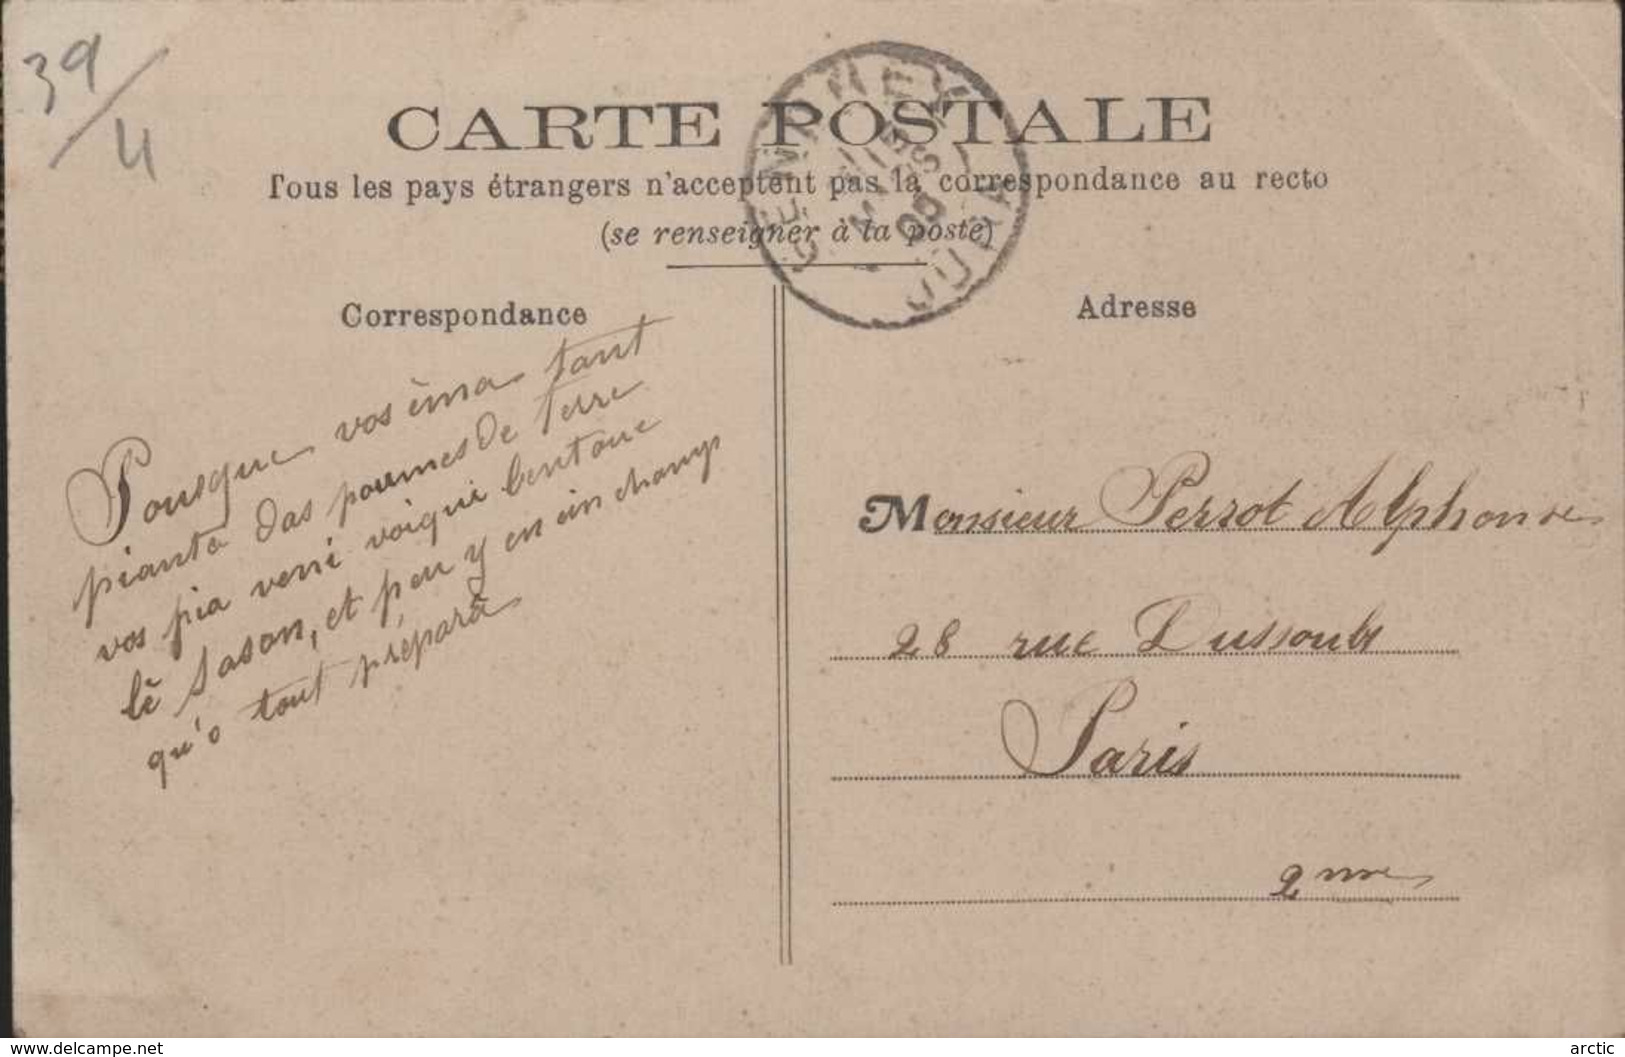 39/4
CARTE POSTALE
Tous les pays étrangers n'acceptent pas la correspondance au recto
(se renseigner à la poste)
GENDREY
JURA
Correspondance
Adresse
Pousque vos èma tant
pianta das poumes de terre
vos pia veni voiqui bentoue
lè sason, et peu y en ain champ
qu'o tout prépara
Monsieur Perrot Alphonse
28 rue Dussoubs
Paris
2me
www.delcampe.net
arctic